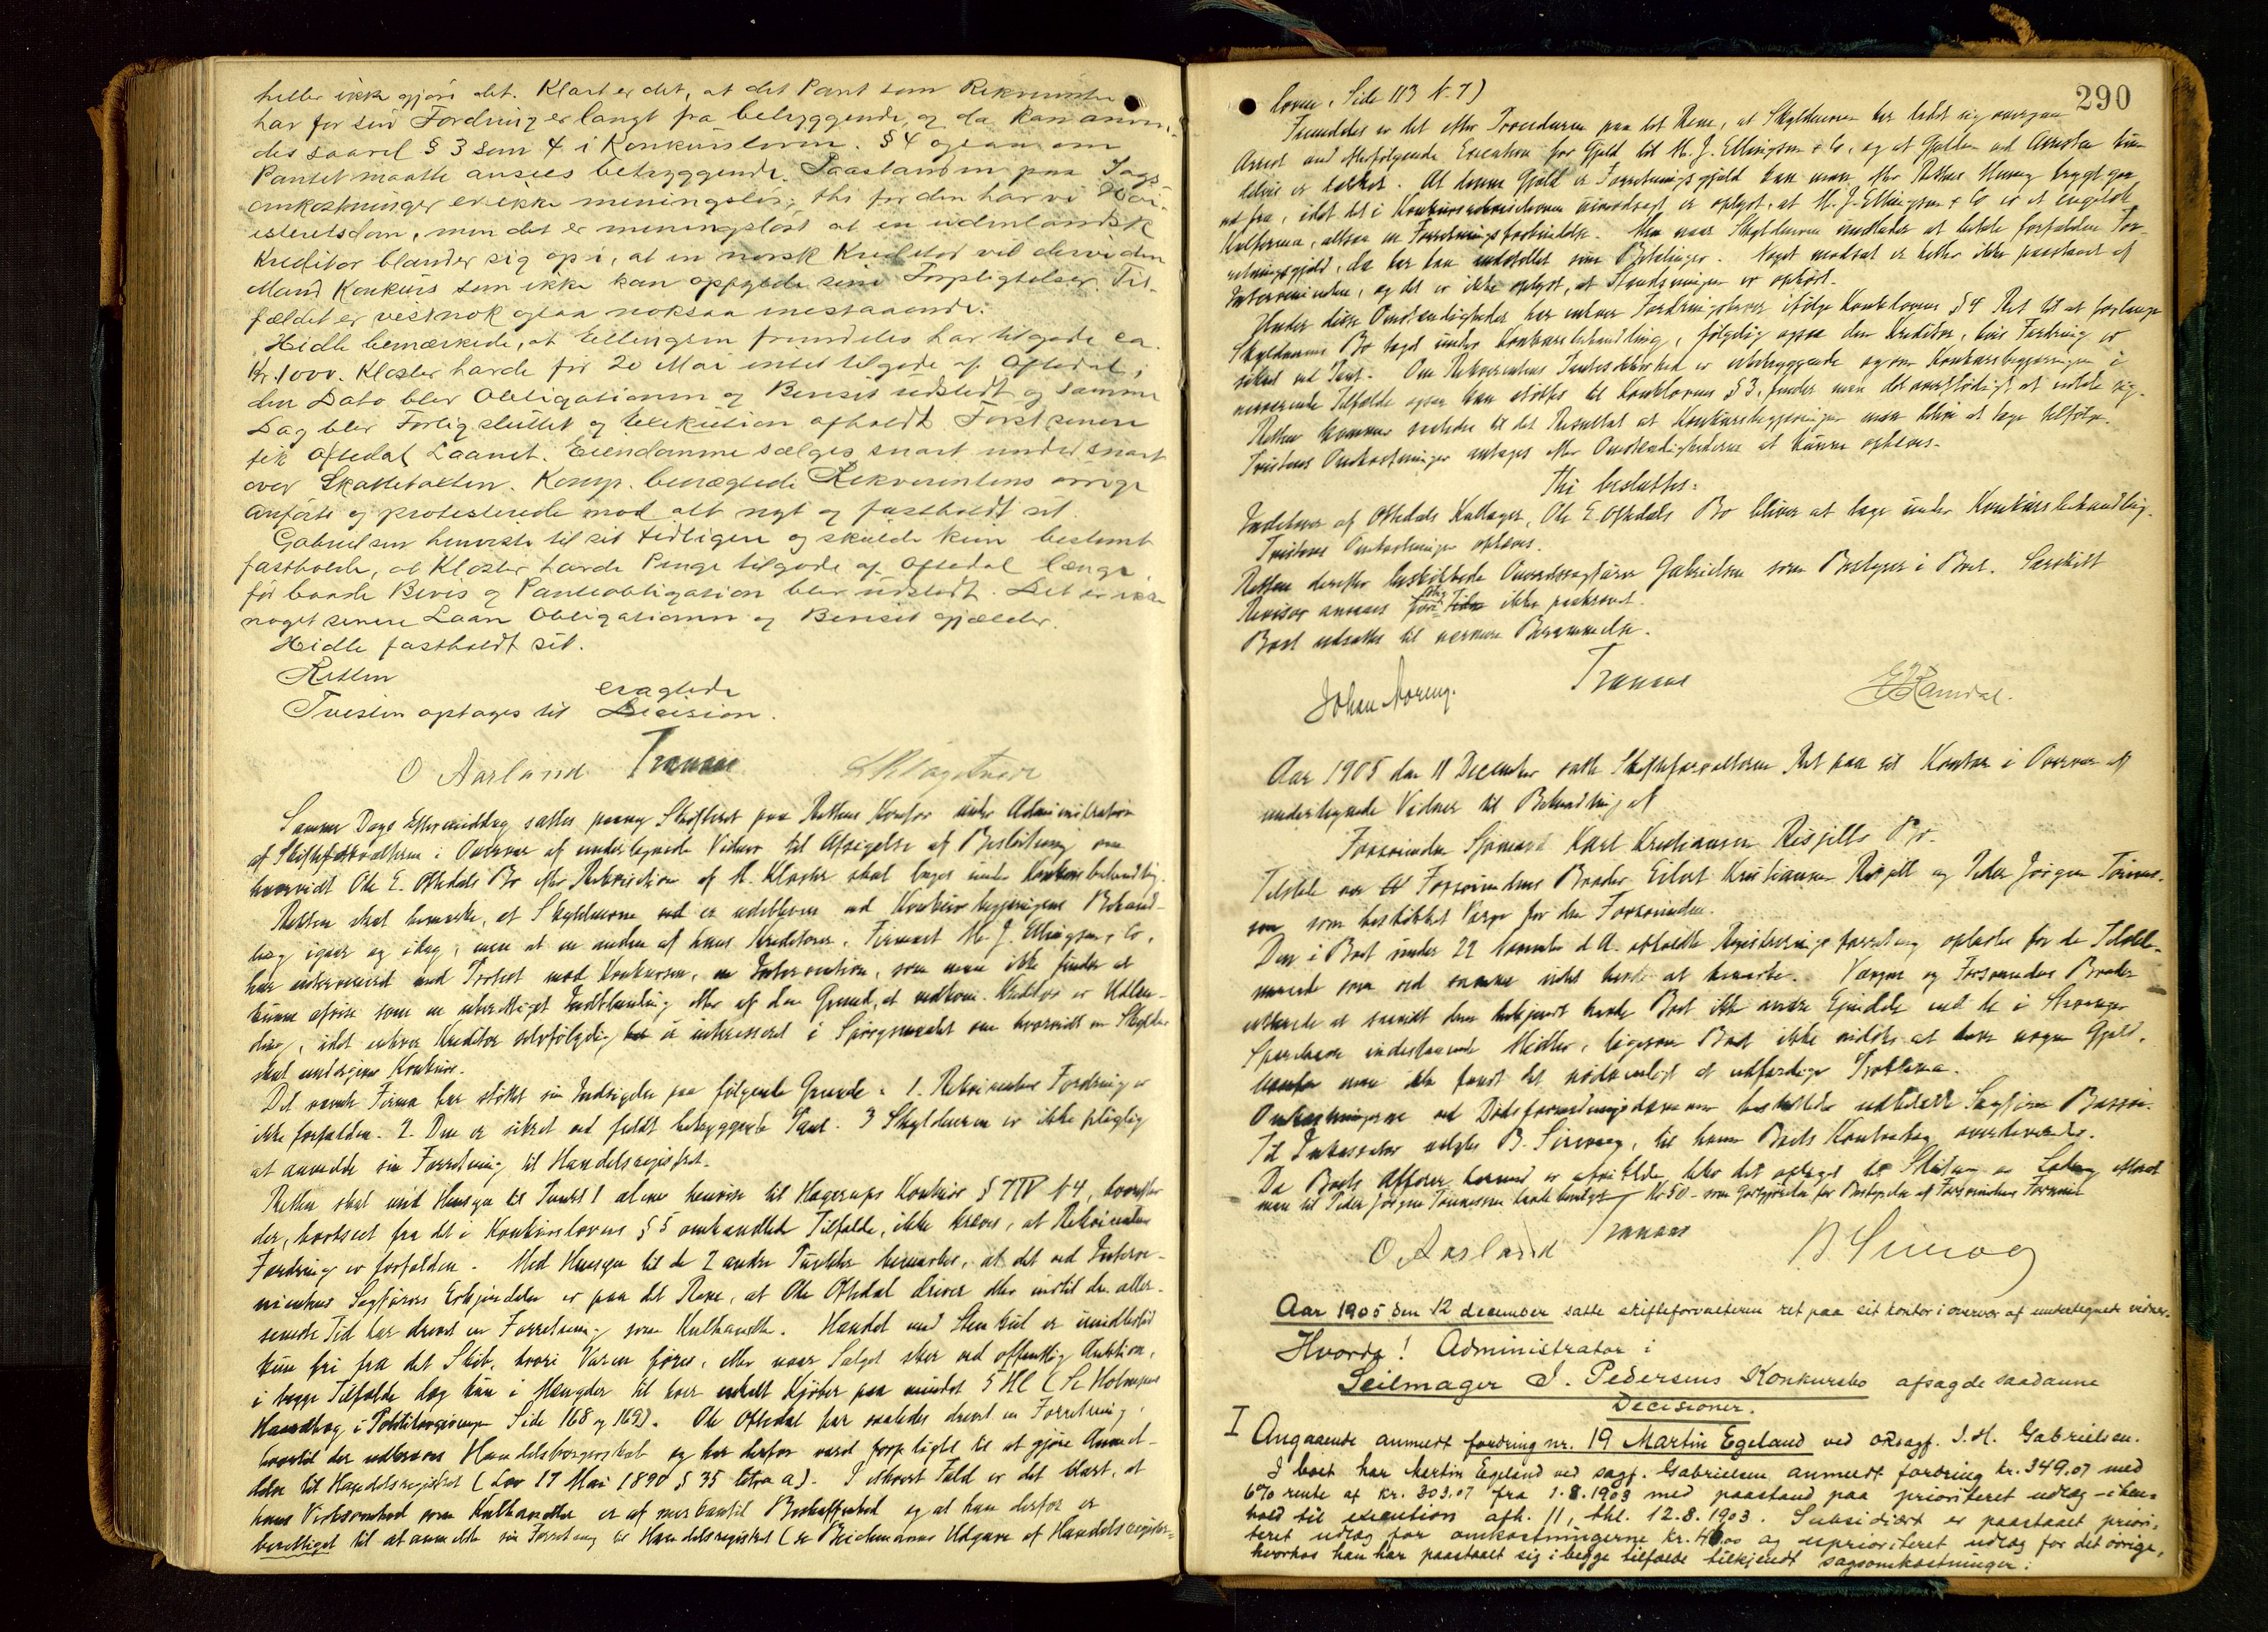 heller ikke gjøre det. Klart er det, at det Pant som Rekvirenten
har for sin Fordring er langt fra betryggende, og da kan anven-
des saavel § 3 som 4 i Konkursloven. § 4 ogsaa om
Pantet maatte ansees betryggende. Paastanden paa Sags-
omkostninger er ikke meningsløs, thi for den har vi Høi-
esteretsdom, men det er meningsløst at en udenlandsk
Kreditor blander sig opi, at en norsk Kreditor vil
Mand Konkurs som ikke kan opfylde sine Forpligtelser. Til-
fældet er vistnok ogsaa noksaa enestaaende.
Hidle bemærkede, at Ellingsen fremdeles har tilgode ca.
Kr. 1000. Kloster havde før 20 Mai intet tilgode af Oftedal;
den Dato blev Obligationen og Beviset udstedt og samme
Dag blev Forlig sluttet og Exekution afholdt. Først senere
fik Oftedal Laanet. Eiendomme sælges snart under snart
over Skattetakten. Komp. benægtede Rekvirentens øvrige
Anførte og protesterede mod alt nyt og fastholdt sit.
Gabrielsen henviste til sit tidligere og skulde kun bestemt
fastholde, at Kloster havde Penge tilgode af Oftedal længe
før baade Bevis og Panteobligation blev udstedt. Det er ikke
noget senere Laan Obligationen og Beviset gjælder.
Hidle fastholdt sit.
Retten
eragtede
Tvisten optages til Decision.
O Aarland Tranaas
Samme Dags Eftermiddag sattes paany Skifteret paa Rettens Kontor under Administration
af Skifteforvalteren i Overvær af undertegnede Vidner til Afsigelse af Beslutning om
hvorvidt Ole E. Oftedals Bo efter Rekvisition af M. Kloster skal tages under Konkursbehandling.
Retten skal bemerke, at Skyldneren ved er udebleven ved Konkursbegjæringens Behand-
ling igaar og idag, men at en anden af hans Kreditorer, Firmaet M. J. Ellingsen & Co.
har interveneret med Protest mod Konkursen, en Intervention, som man ikke finder at
kunne afvise som en uberettiget Indblanding eller af den Grund, at vedkom. Kreditor er Udlæn-
ding, idet enhver Kreditor selvfølgelig er interesseret i Spørgsmaalet om hvorvidt en Skyldner
skal undergives Konkurs.
Det nævnte Firma har støttet sin Indsigelse paa følgende Grunde: 1. Rekvirentens Fordring er
ikke forfalden. 2. Den er sikret ved fuldt betryggende Pant. 3 Skyldneren er ikke pligtig
at anmelde sin Forretning til Handelsregistret.
Retten skal med Hensyn til Punkt 1 alene henvise til Hagerups Konkurs § 7 IV N 4, hvorefter
der, bortseet fra det i Konkurslovens § 5 omhandlede Tilfælde, ikke kræves, at Rekvirentens
Fordring er forfalden. Med Hensyn til de 2 andre Punkter bemærkes, at det ved Interve-
nientens Sagførers Erkjendelse er paa det Rene, at Ole Oftedal driver eller indtil den aller-
seneste Tid har drevet en Forretning som Kulhandler. Handel med Stenkul er imidlertid
kun fri fra det Skib, hvori Varen føres, eller naar Salget sker ved offentlig Auktion,
i begge Tilfælde dog kun i Mængder til hver enkelt Kjøber paa mindst 5 Hl (Se Holmgrens
Haandbog i Politilovgivningen Side 168 og 169). Ole Oftedal har saaledes drevet en Forretning,
hvortil der udkræves Handelsborgerskab og har derfor været forpligtet til at gjøre Anmel-
delse til Handelsregistret (Lov 17 Mai 1890 § 35 litra a). I ethvert Fald er det klart, at
hans Virksomhed som Kulhandler er af merkantil Beskaffenhed og at han derfor er
berettiget til at anmelde sin Forretning til Handelsregistret (se Beichmanns Udgave af Handelsregister-
290
loven, Side 113 N. 7)
Fremdeles er det efter Proceduren paa det Rene, at Skyldneren har ladet sig overgaa
Arrest med efterfølgende Execution for Gjæld til M. J. Ellingsen & Co, og at Gjælden ved Arresten kun
delvis er dækket. At denne Gjæld er Forretningsgjæld kan man efter Rettens Mening trygt gaa
ud fra, idet det i Konkursrekvisitionen uimodsagt er oplyst, at M. J. Ellingsen & Co er et engelsk
Kulfirma, altsaa en Forretningsforbindelse. Men naar Skyldneren undlader at betale forfalden For-
retningsgjæld, da har han indstillet sine Betalinger. Noget modsat er heller ikke paastaaet af
Intervenienten, og det er ikke oplyst, at Standsningen er ophørt.
Under disse Omstændigheder har enhver Fordringshaver ifølge Konkurslovens § 4 Ret til at forlange
Skyldnerens Bo taget under Konkursbehandling, følgelig ogsaa den Kreditor, hvis Fordring er
sikret ved Pant. Om Rekvirentens Pantesikkerhed er ubetryggende og om Konkursbegjæringen i
nærværende Tilfælde ogsaa kan støttes til Konkurslovens § 3, finder man det overflødigt at udtale sig.
Retten kommer saaledes til det Resultat at Konkursbegjæringen maa blive at tage tilfølge.
Tvistens Omkostninger antages efter Omstændighederne at kunne ophæves.
Thi besluttes:
Indehaver af Oftedals Kullager, Ole E Oftedals Bo bliver at tage under Konkursbehandling.
Tvistens Omkostninger ophæves.
Retten derefter beskikkede Overretssagfører Gabrielsen som Bestyrer i Boet. Særskilt
Revisor ansaaes ikke paakrævet.
Boet udsattes til nærmere Berammelse.
Johan Noreng. Tranaas E Ramdal.
Aar 1905 den 11 December satte Skifteforvalteren Ret paa sit Kontor i Overvær af
undertegnede Vidner til Behandling af
Forsvundne Sjømand Karl Kristiansen Risjells Bo.
Tilstede var Forsvundnes Broder Eilert Kristiansen Risjell og Peder Jørgen Tønnes-
sen som beskikket Værge for den Forsvundne.
Den i Boet under 22 November d.A. afholdte Registreringsforretning oplæstes for de Tilstede-
værende som ved samme intet havde at bemærke. Værgen og Forsvundnes Broder
erklærede at saavidt dem bekjendt havde Boet ikke andre Eiendele end de i Stavanger
Sparebank indestaaende Midler, ligesom Boet ikke vidstes at have nogen Gjæld,
hvorfor man ikke fandt det nødvendigt at udfærdige Proklama.
Omkostningerne ved Dødsformodningsdommen besluttedes udbetalt Sagfører Bassøe.
Til Inkassator valgtes B. Sirevaag, til hvem Boets Kontrabog overleveredes.
Da Boets Affærer hermed er afviklede, blev det optaget til Slutning og Lodning efterat
man til Peder Jørgen Tønnessen havde bevilget Kr 50 - som Godtgjørelse for Bestyrelse af Forsvundnes Formue
O. Aarland Tranaas B. Sirevaag
Aar 1905 den 12 december satte skifteforvalteren ret paa sit kontor i overvær af undertegnede vidner.
Hvorda! Administrator i
Seilmager J. Pedersens Konkursbo afsagde saadanne
Decisioner.
I Angaaende anmeldt fordring nr. 19 Martin Egeland ved oRsagf. J. H. Gabrielsen.
I boet har Martin Egeland ved sagf. Gabrielsen anmeldt fordring kr. 349.07 med
6% rente af kr. 303.07 fra 1.8.1903 med paastand paa prioriteret udlæg - i hen-
hold til execution afh. 11, thl. 12.8.1903. Subsidiært er paastaaet priori-
teret udlæg for omkostningerne kr. 46.00 og uprioriteret udlæg for det øvrige,
hvorhos han har paastaaet sig i begge tilfælde tilkjendt sagsomkostninger.